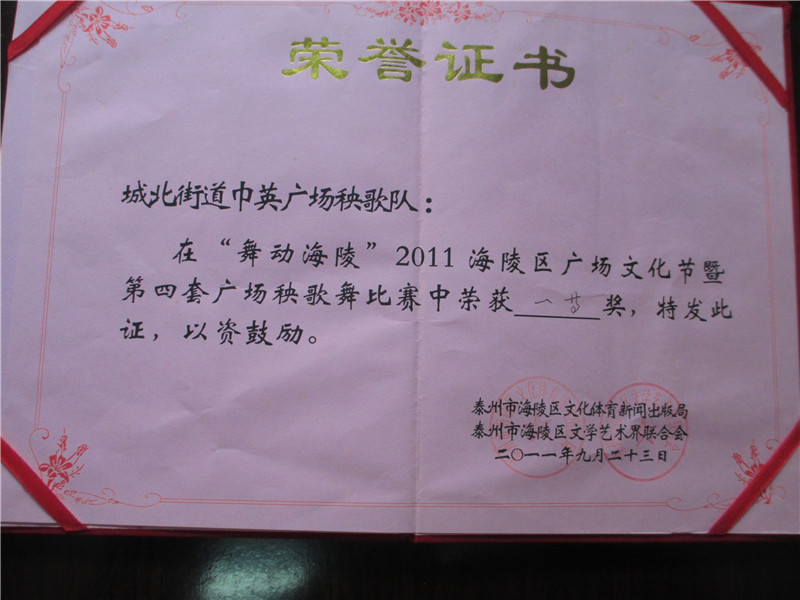 荣誉证书
城北街道巾英广场秧歌队：
在“舞动海陵”2011海陵区广场文化节暨
第四套广场秧歌舞比赛中荣获一等奖，特发此
证，以资鼓励。
泰州市海陵区文化体育新闻出版局
泰州市海陵区文学艺术界联合会
二〇一一年九月二十三日